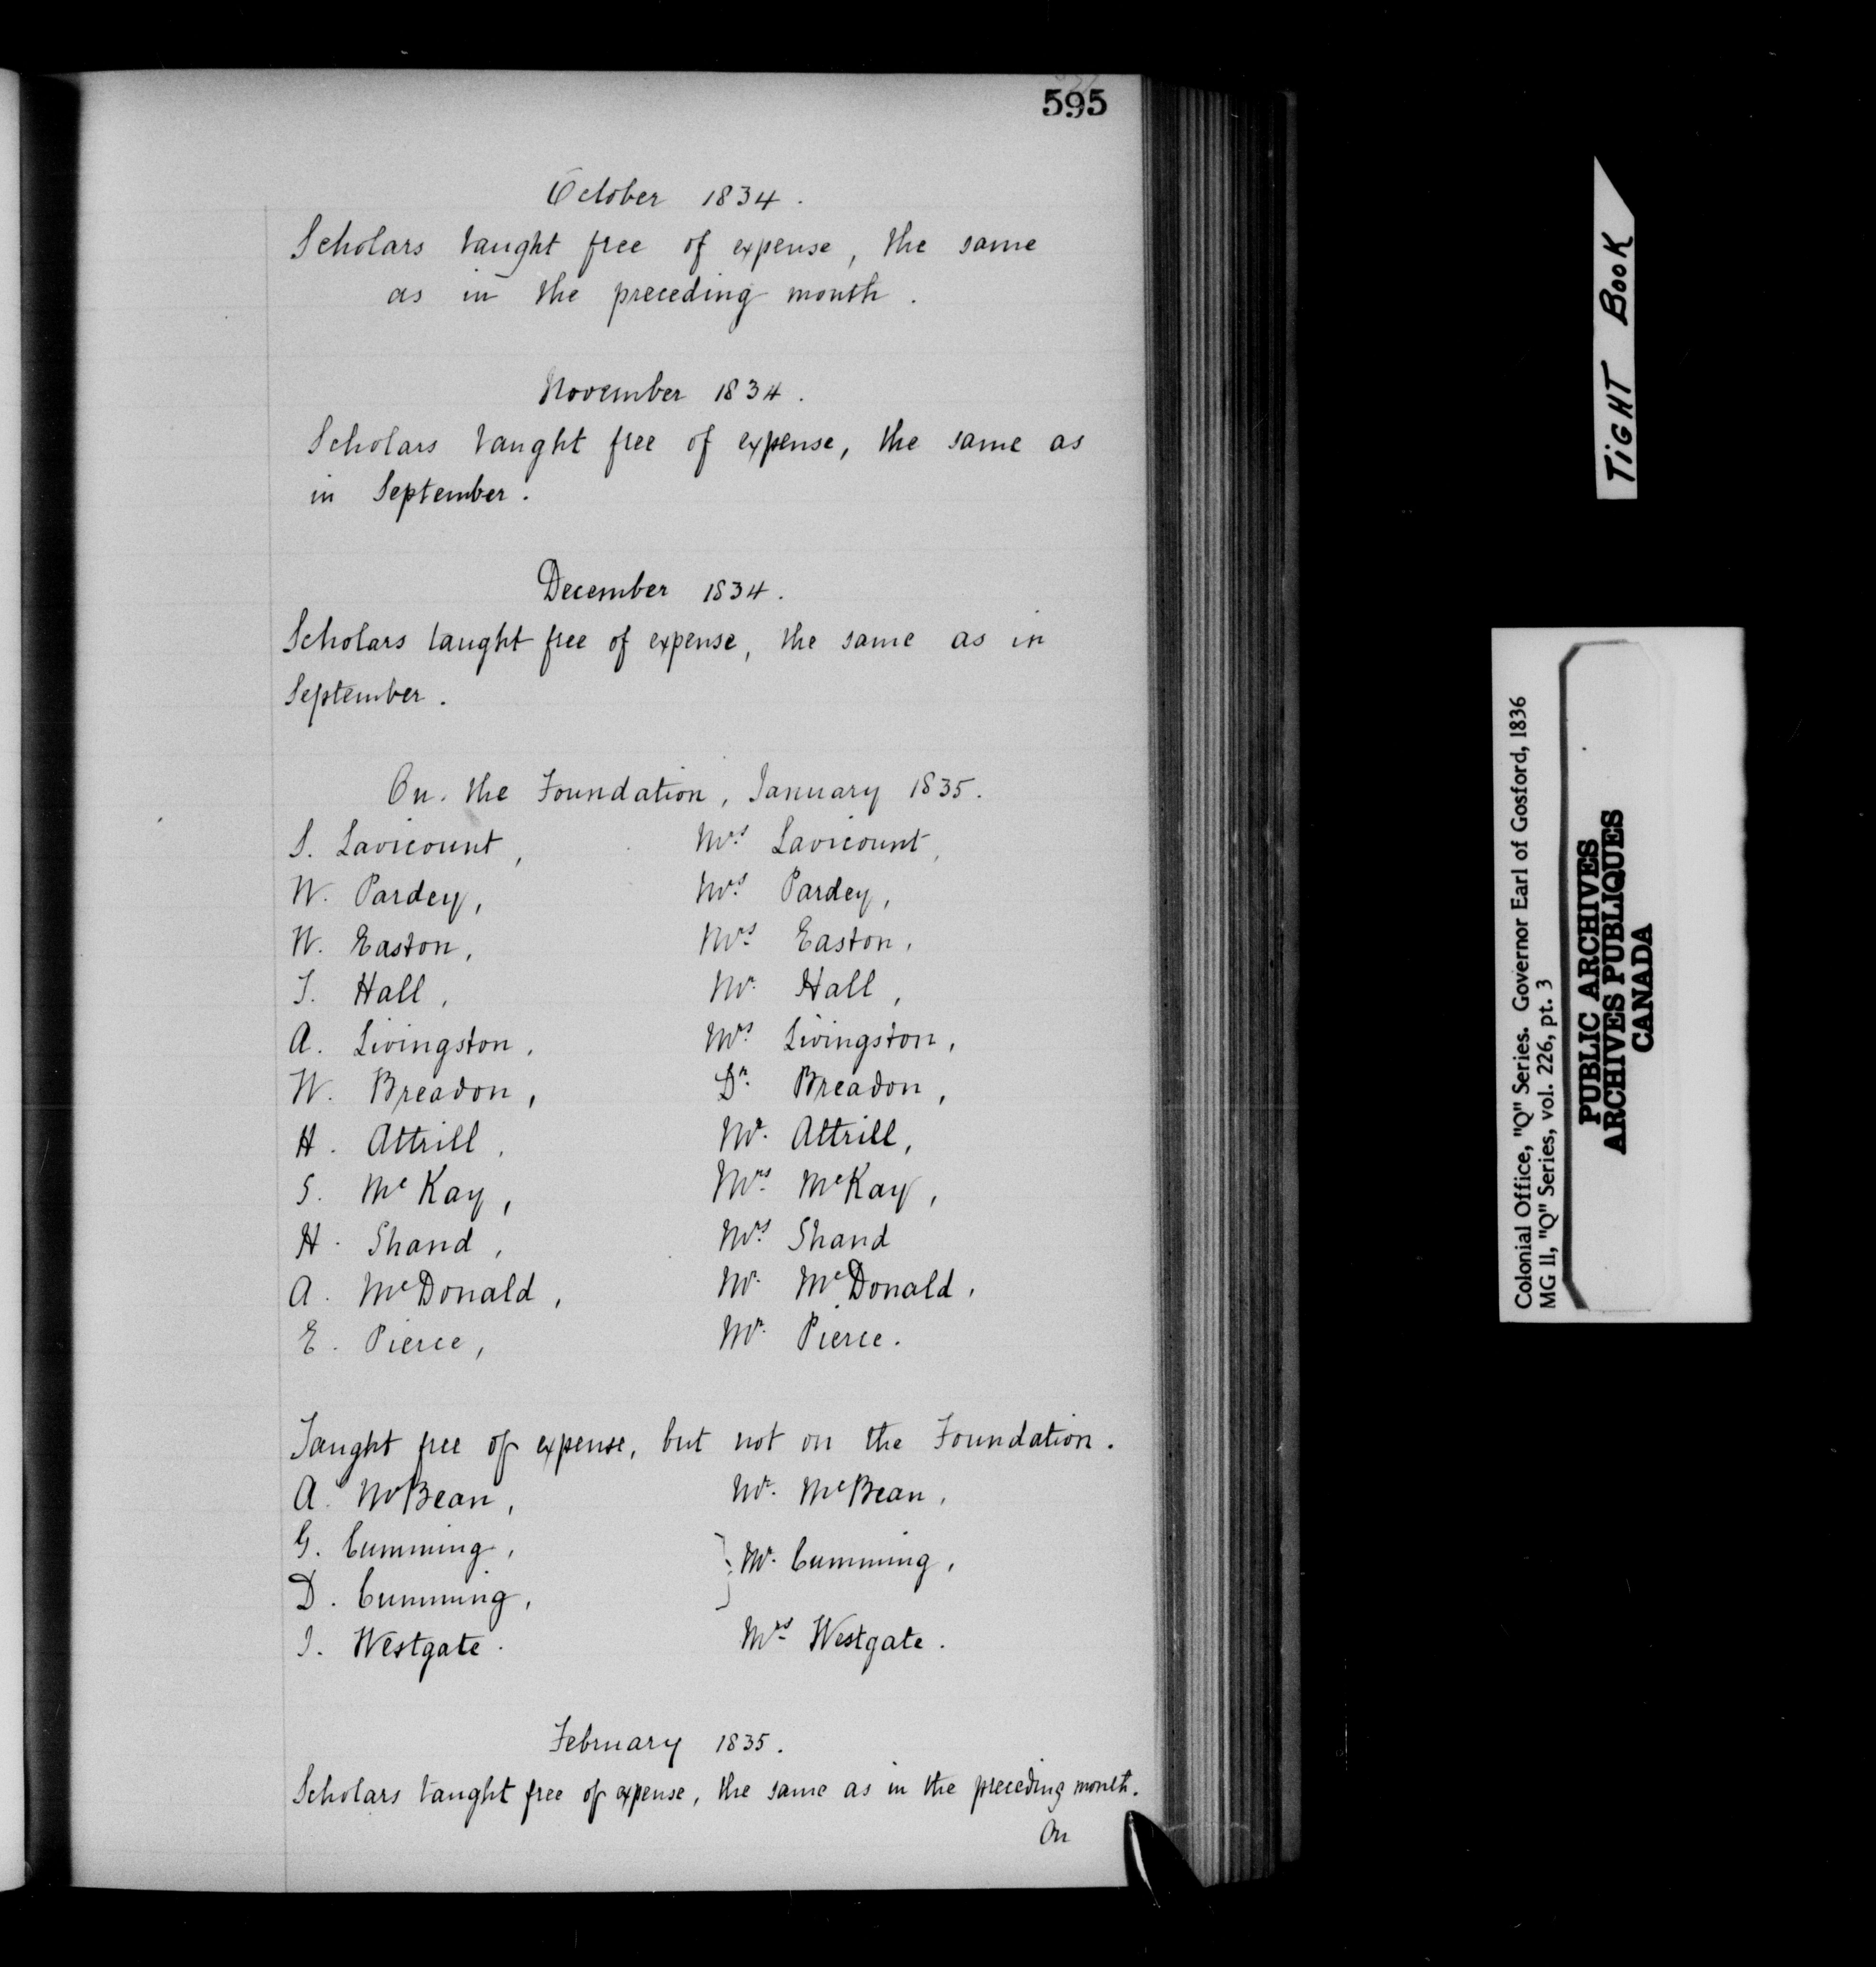 595
October 1834.
Scholars taught free of expense, the same
as in the preceding month.
November 1834.
Scholars taught free of expense, the same as
in September.
December 1834.
Scholars taught free of expense, the same as in
September.
On the Foundation, January 1835.
S. Lavicount, Mrs Lavicount,
W. Pardey, Mrs Pardey,
W. Easton, Mrs Easton,
T. Hall, Mr. Hall,
A. Livingston, Mrs Livingston,
W. Breadon, Dr. Breadon,
H. Attrill, Mr. Attrill,
S. McKay, Mrs McKay,
H. Shand, Mrs Shand
A. McDonald, Mr. McDonald,
E. Pierce, Mr. Pierce.
Taught free of expense, but not on the Foundation.
A. McBean, Mr. McBean,
G. Cumming,
D. Cumming, } Mr. Cumming,
J. Westgate. Mrs Westgate.
February 1835.
Scholars taught free of expense, the same as in the preceding month.
On
TIGHT BOOK
Colonial Office, "Q" Series. Governor Earl of Gosford, 1836
MG 11, "Q" Series, vol. 226, pt. 3
PUBLIC ARCHIVES
ARCHIVES PUBLIQUES
CANADA